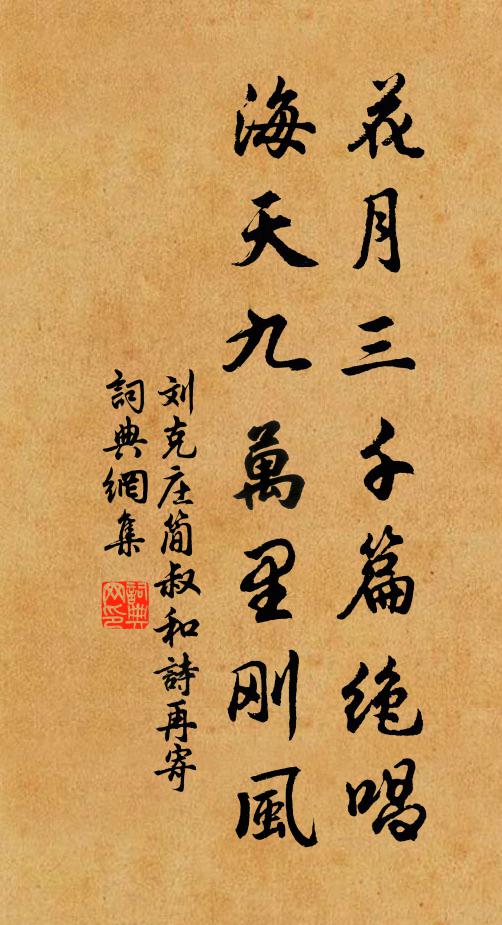 花月三千篇绝唱
海天九萬里刚風
刘克庄简叔和詩再寄
詞典網集
詞典网印